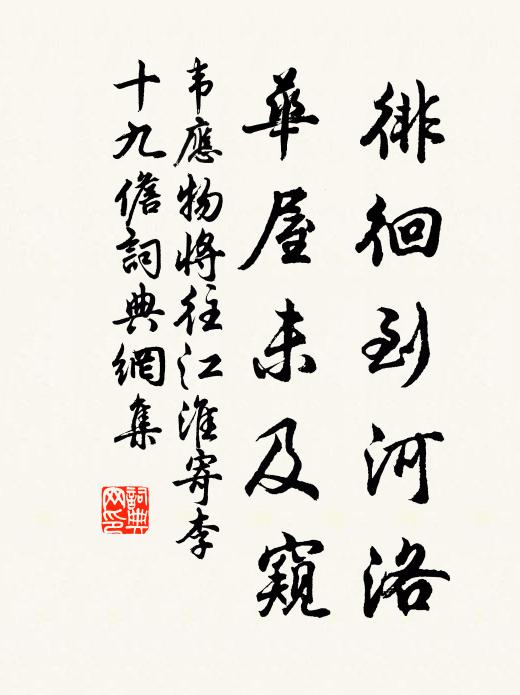 徘徊到河洛
華屋未及窺
韦應物將往江淮寄李
十九儋詞典網集
詞典
网印